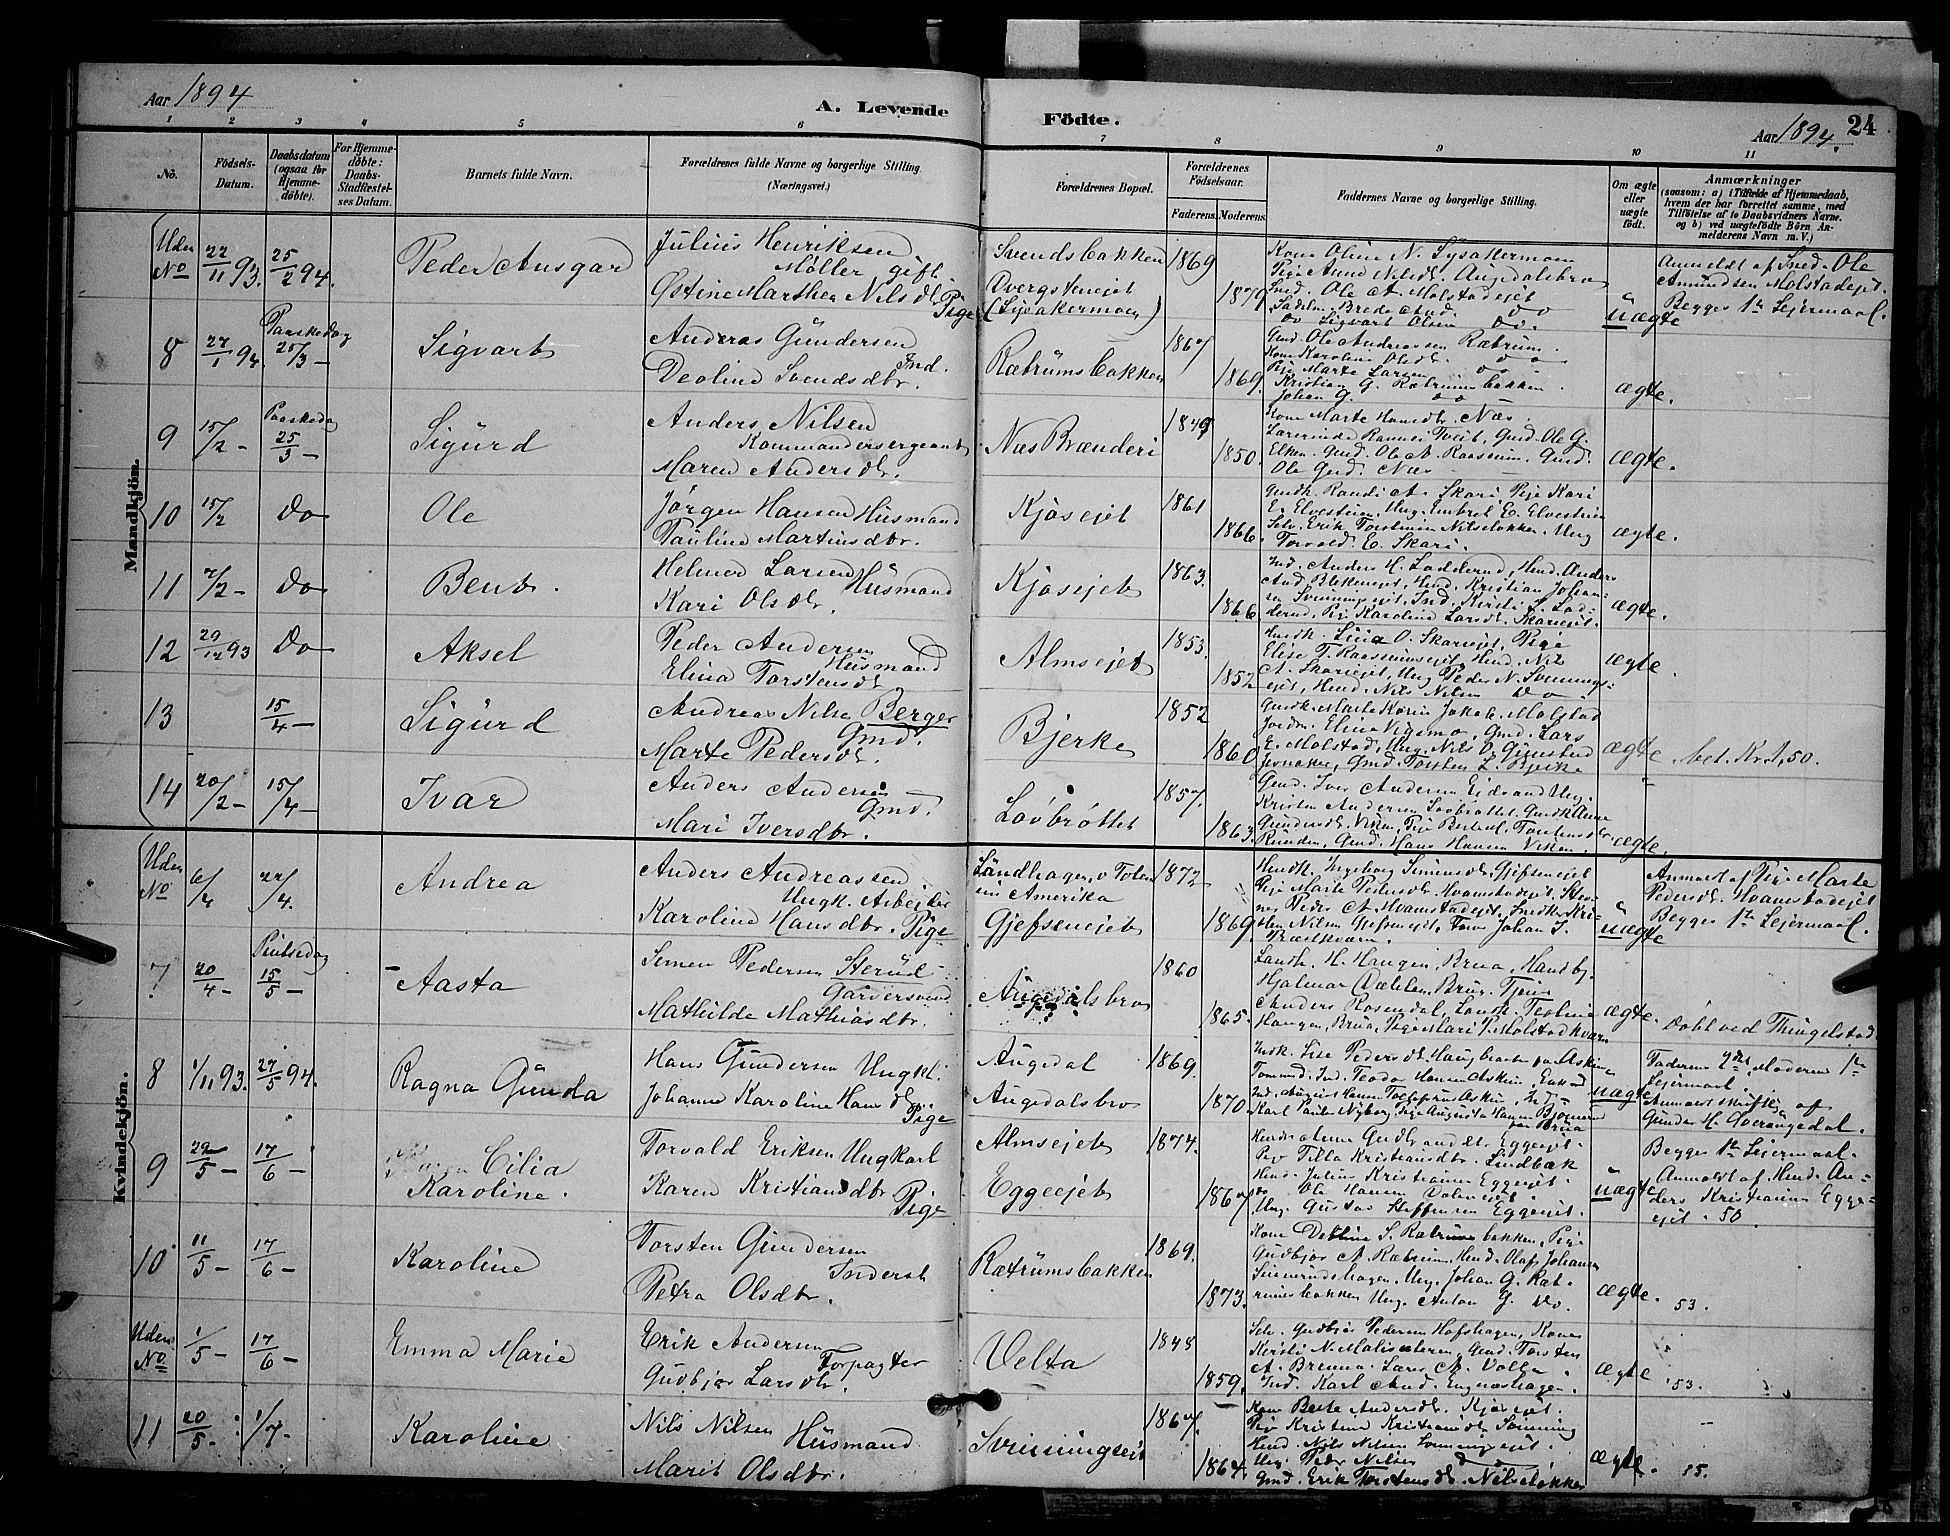 Aar 1894
A. Levende
Födte.
Aar 1894.
24
1 2 3 4 5 6 7 8 9 10 11
No.
Födsels-Datum.
Daabsdatum (ogsaa for Hjemme-döbte).
For Hjemme-döbte: Daabs-Stadfæstel-ses Datum.
Barnets fulde Navn.
Forældrenes fulde Navne og borgerlige Stilling. (Næringsvei.)
Forældrenes Bopæl.
Forældrenes Födselsaar.
Faderens. Moderens.
Faddernes Navne og borgerlige Stilling.
Om ægte eller uægte født.
Anmærkninger
(saasom: a) i Tilfælde af Hjemmedaab,
hvem der har forrettet samme, med
Tilföielse af to Daabsvidners Navne.
og b) ved uægtefödte Börn An-
melderens Navn m. V.)
Mandkjön.
Uden No 22/11 93. 25/2 94. Peder Ansgar
Julius Henriksen
Møller gift
Østine Marthea Nilsdtr Pige
Svendsbakken
Dvergstenejet
(Lysakermoen)
1869
1879
Kone Oline N. Lysakermoen
Ole A. Molstadejet
Do Sigvart Olsen Do.
uægte
Anmeldt af Ind. Ole
Amundsen Molstadejet.
Begges 1ste Lejermaal.
8 27/1 94 Paaskedag 25/3 – Sigvart
Anders Gundersen
Ind.
Deoline Svendsdtr.
Rætrumsbakken
1867
1869.
Gmd. Ole Andreassen Rætrum.
Kone Karoline Olsdtr. do
Pige Marte Larsen do
Kristian G. Rætrumsbakken.
Johan G. do
ægte.
9 15/2 – Paaskedag 25/3 – Sigurd
Anders Nilsen
Kommandersergeant
Maren Andersdtr.
Næs Brænderi
1849
1850.
Kone Marte Hansdtr. Næs.
Lærerinde Rannei Tveit, Gmd. Ole G.
Elken. Gmd. Ole A. Raassum. Gmd.
Ole Gmd. Næs
ægte.
10 15/2 Do Ole
Jørgen Hansen Husmand
Pauline Martinsdtr.
Kjøsejet
1861
1866.
Gmdk. Randi A. Skari Pige Kari
E. Elvestuen, Ung. Embret E. Elvestuen
Selv. Erik Torstensen Nilseløkken, Ung
Torvald E. Skari.
ægte.
11 7/2 – Do Bent.
Helmer Larsen Husmand
Kari Olsdtr.
Kjøsejet
1863.
1866
Ind. Anders H. Ladderud, Hmd. Anders
And. Blekenejet, Hmd. Kristian Johan-
sen Svenningsejet, Ind. Kersti L. Lad-
derud, Pige Karoline Larsdtr. Skariejet.
ægte.
12 29/12 93 Do Aksel
Peder Andersen
Husmand
Elina Torstensdtr
Almsejet
1853.
1852
Hmdk. Lina O. Skariejet, Pige
Elise T. Raassumsejet, Hmd. Nils
A. Skariejet, Ung Peder N. Svennings-
ejet, Hmd. Nils Nilsen Do
ægte.
13 15/4 – Sigurd
Andreas Nilse Berger
Gmd.
Marte Pedersdtr.
Bjerke
1852
1860
Gmdk. Marte Karin Jakobs. Molstad
Jordm. Elina Vigsmo, Gmd. Lars
E. Molstad, Ung. Nils O. Gjinstad
Jevnaker, Gmd. Torsten L. Bjerke
ægte
bet. Kr. 1,50.
14 20/2 – 15/4 – Ivar
Anders Andersen
Gmd.
Mari Iversdtr.
Løvbrøttet
1857.
1863.
Gmd. Iver Andersen Ejdsand Ung.
Kristen Andersen Løvbrøttet. Gmdk Anne
Gundersdtr. Viken, Pige Berte
Gmd. Hans Hansen Viken.
ægte.
Kvindekjön.
Uden No 6/4 22/4. Andrea
Anders Andreassen
Ungk. Arbejder
Karoline Hansdtr. Pige
Landhagen, v Toten
nu Amerika
Gjefsenejet
1872
1869
Hmdk. Ingeborg Simensdtr. Gjefsenejet
Pige Marte Pedersdtr. Hvamstadejet
Peder A. Hvamstadejet. Smdk Kri-
Nilsen Gjefsenejet, Johan J.
Præstkværn.
uægte
Anmeldt af Pige Marte
Pedersdtr. Hvamstadejet
Begges 1ste Lejermaal.
7 20/4 – Pintsedag 15/5 – Aasta
Simen Pedersen Sterud
Garversvend
Mathilde Mathiasdtr.
Augedalsbro
1860
1865.
Landh. H. Haugen, Brua, Handbj.
Hjalmar Dæhlen, Brua, Tjen.
Anders Rosendal, Landh. Teoline
Haugen, Brua, Pige Mari P. Molstadkværn
ægte.
Døbt ved Thingelstad
8 1/11 93. 27/5 94. Ragna Gunda
Hans Gundersen Ungk.
Johanne Karoline Hansdtr
Pige
Augedal
Augedalsbro
1869.
1870
Indk. Lise Pedersdtr. Haugbraaten
Ind. Teodor Hansen Askim
Karl Paulsen Nyborg, Pige Augusta Hansen Bjoneroa
Brua
uægte
Faderens 2det, Moderens 1ste
Lejermaal.
Anmeldt skriftlig af
Gunder H. Overaugedal.
9 29/5 – 17/6 – Cilia
Karoline.
Torvald Eriksen Ungkarl
Karen Kristiansdtr Pige
Almsejet
Eggeejet
1874.
1867
Pige Tilla Kristiansdtr. Lindbæk
Hmd. Julius Kristiansen Eggeejet.
do Ole Hansen Dalenejet.
Ung. Gustav Steffensen Eggeejet.
uægte
Begges 1ste Lejermaal.
Anmeldt af Hmd. An-
ders Kristiansen Egge-
ejet. 50.
10 11/5 – 17/6 – Karoline
Torsten Gundersen
Inderst
Petra Olsdtr.
Rætrumsbakken
1869.
1873.
Kone Deoline S. Rætrumsbakken, Pige
Gudbjør A. Rætrum. Hmd. Olaf Johansen
Simenrudshagen, Ung. Johan G. Ræt-
rumsbakken Ung. Anton G. Do.
ægte.
53.
Uden No 1/5 – 17/6 – Emma Marie
Erik Andersen
Forpagter
Gudbjør Larsdtr.
Velta
1848
1859.
Selv. Gudbjør Pedersen Hofshagen, Kone
Kersti N. Gmd. Torsten
A. Brenna. Lærer A. Volla
Ind. Karl And. Engnæshagen.
ægte
53.
11 20/5 – 1/7 – Karoline
Nils Nilsen Husmand
Marit Olsdtr.
Svenningsejet
1867.
1864.
Kone Berte Andersdtr. Kjøsejet.
Pige Kristine Kristiansdtr. Svenning
Hmd. Nils Nilsen Svenningsejet.
Ung. Peder Nilsen do
Gmd. Erik Torstensdtr. Nilseløkken
ægte.
55.